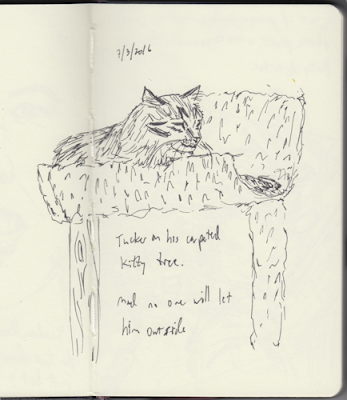 2/3/2016
Tucker on his carpeted
Kitty tree.
mad no one will let
him outside